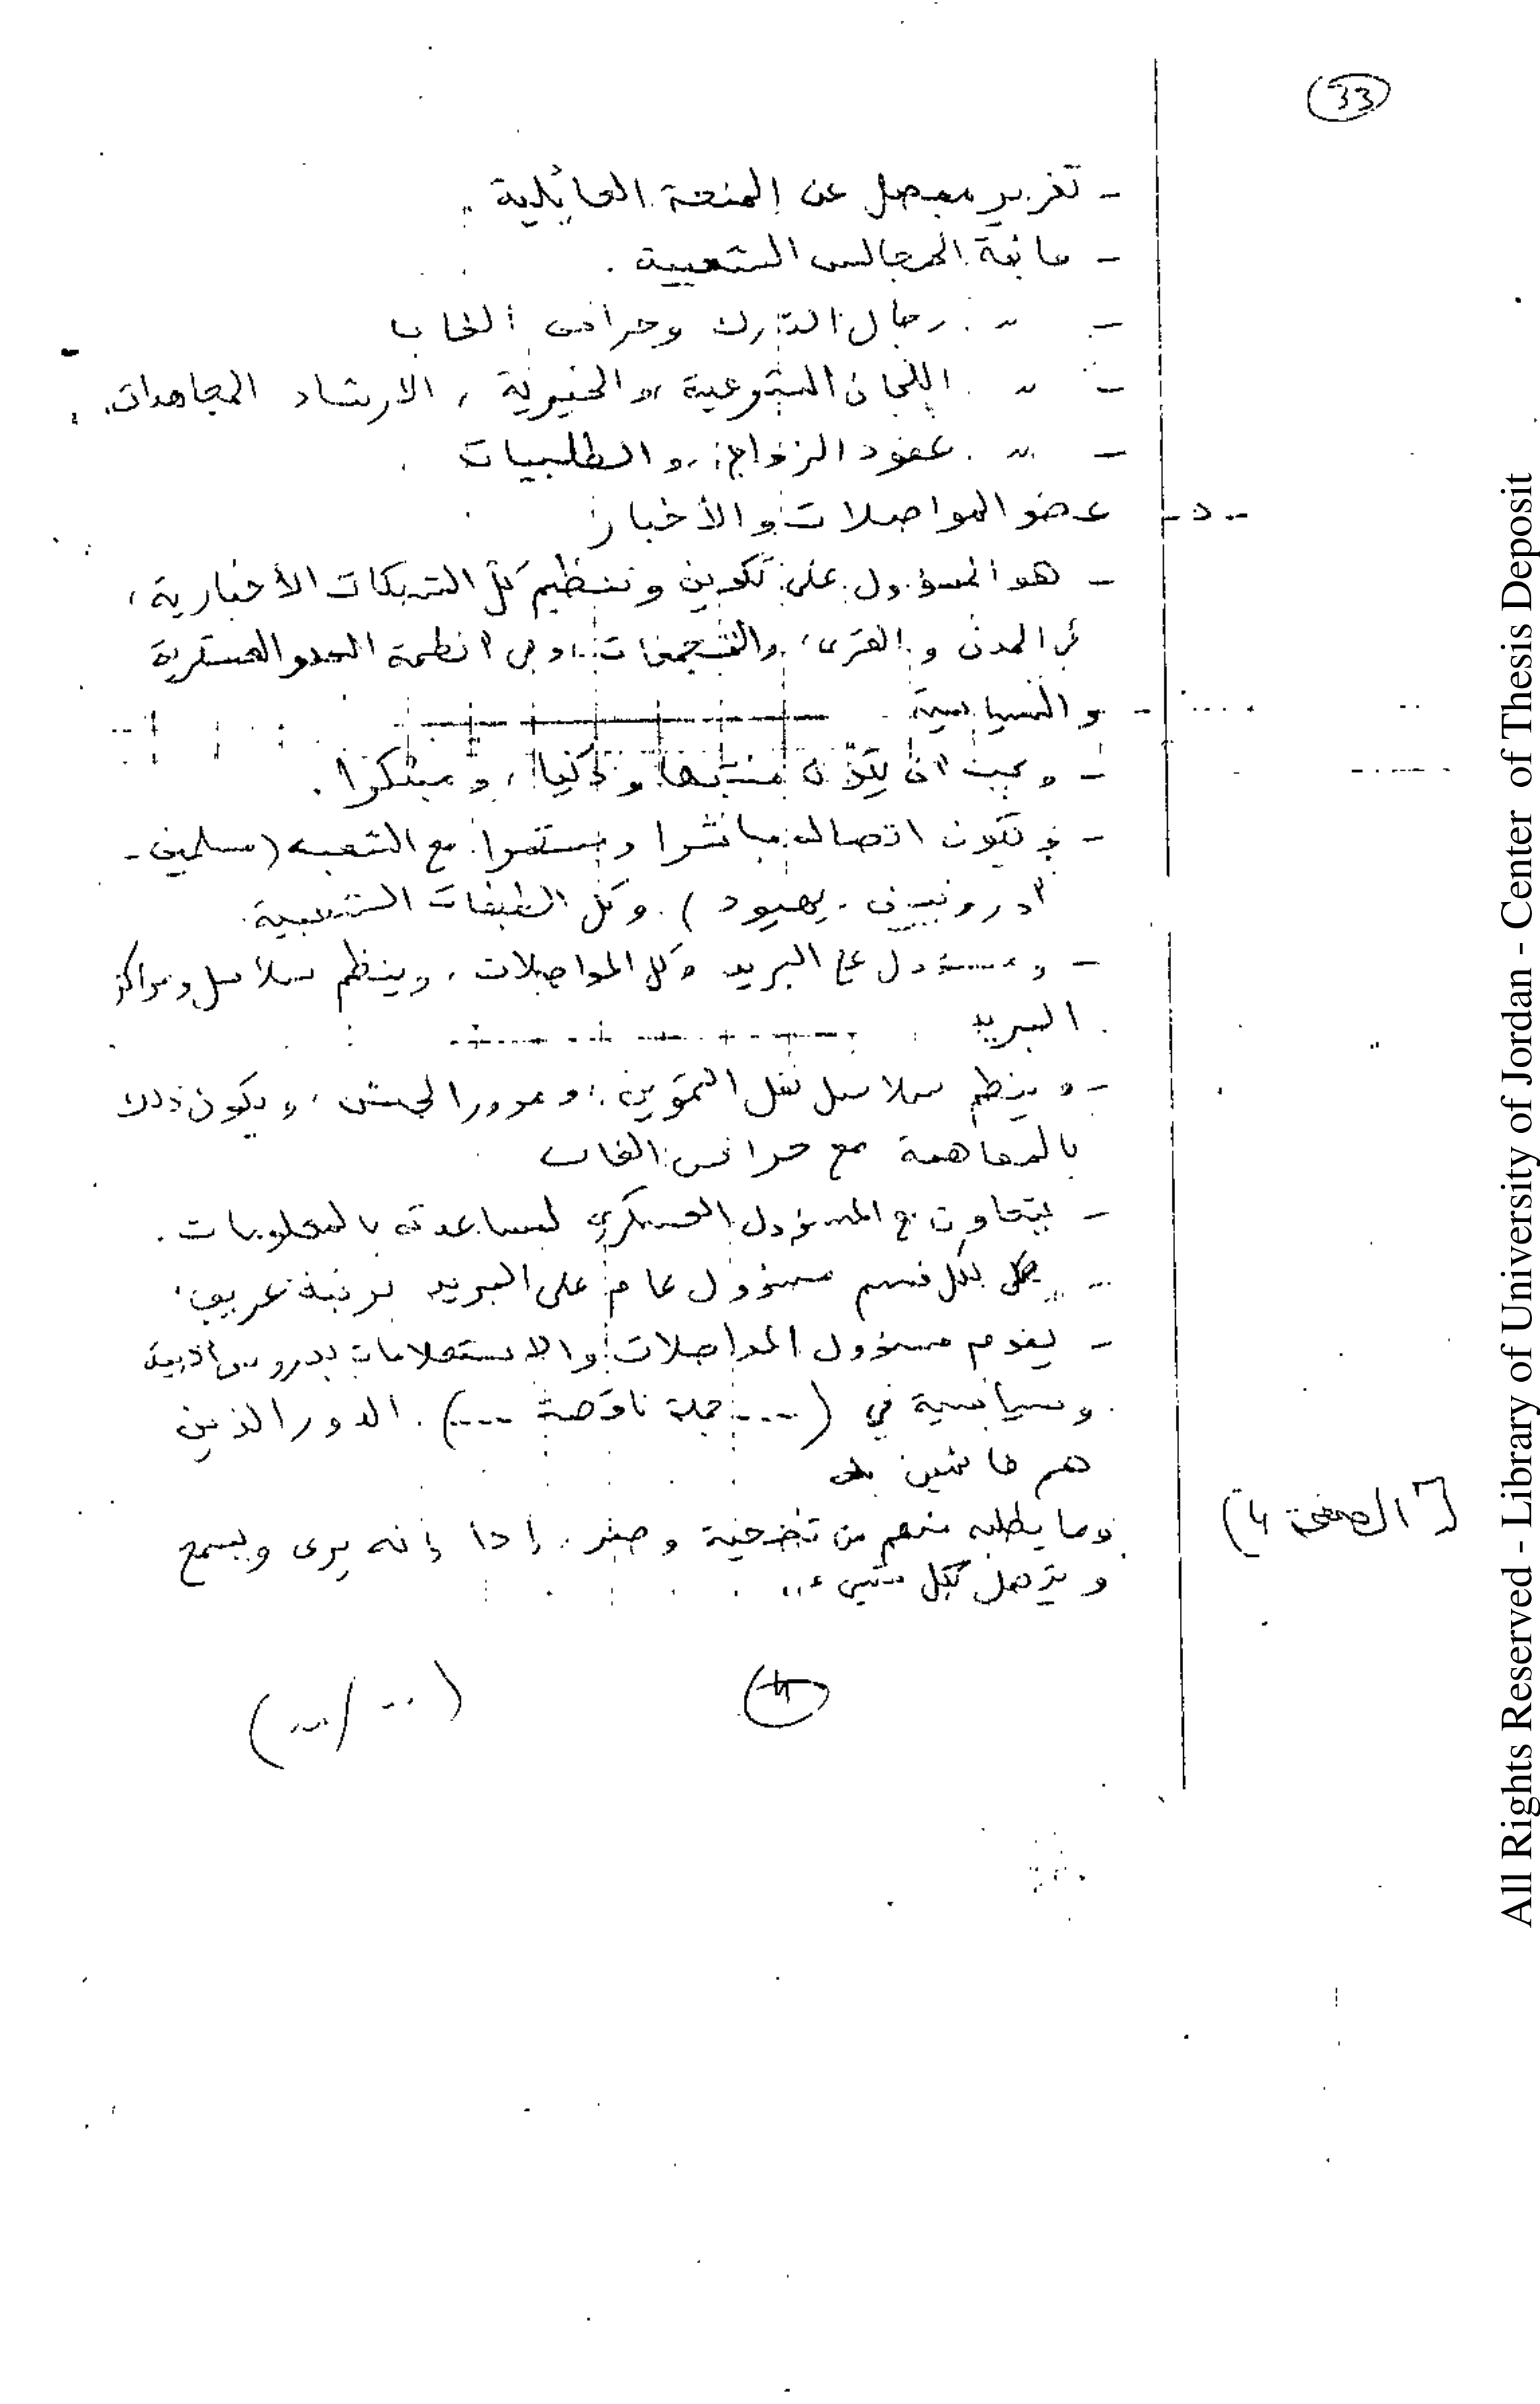 33
- تقرير مفصل عن المنحة العائلية .
- قائمة المجالس الشعبية .
- " . رجال الدرك وحراس الغاب
- " . اللجان الشرعية ، والخيرية ، الارشاد المجاهدات .
- " . عقود الزواج ، والطلبيات .
- د - عضو المواصلات والأخبار
- هو المسؤول على تكوين وتنظيم كل الشبكات الأخبارية ،
في المدن و القرى ، والتجمعات ، وفي أنظمة العدو العسكرية
والسياسية
- ويجب أن يكون منتبها وذكيا ، ومبتكرا .
- ويكون اتصاله مباشرا ومستمرا مع الشعب (مسلمين -
أوروبيين . يهود ) . وكل الطبقات الشعبية .
- ومسؤول على البريد وكل المواصلات ، وينظم سلاسل ومراكز
البريد .
- وينظم سلاسل نقل التموين ، ومرور الجيش ، ويكون ذلك
بالمفاهمة مع حراس الغاب
- يتعاون مع المسؤول العسكري لمساعدته بالمعلومات .
- لكل قسم مسؤول عام على البريد برتبة عريف .
- يقوم مسؤول المواصلات والاستعلامات بدروس أدبية
وسياسية في (.... جملة ناقصة ....) . الدور الذين
هم قائمين به
[" الصفحة 4)
وما يطلبه منهم من تضحية وصبر . إذا إنه يرى ويسمع
و لكل شيء ..
4
(.../...)
All Rights Reserved - Library of University of Jordan - Center of Thesis Deposit